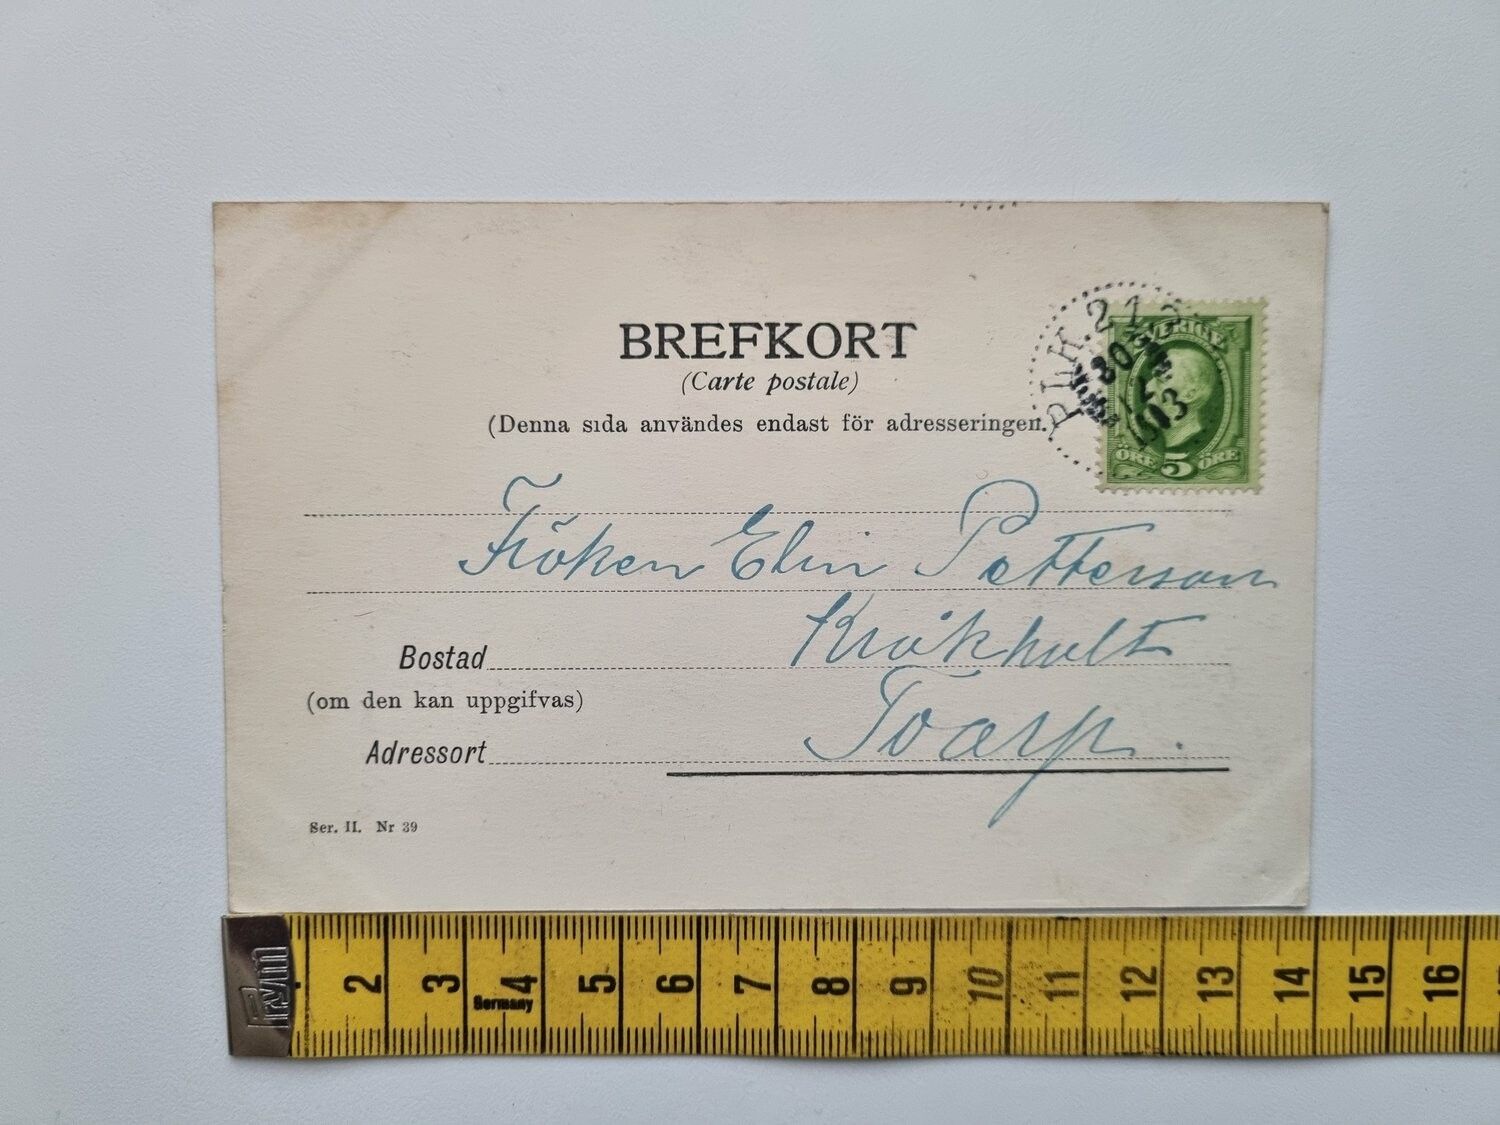 BREFKORT
(Carte postale)
(Denna sida användes endast för adresseringen.
PLK. 212
30
12
1903
SVERIGE
ÖRE 5 ÖRE
Fröken Elin Petterson
Bostad Kråkhult
(om den kan uppgifvas)
Adressort Toarp.
Ser. II. Nr 39
Prym
2 3 4 5 6 7 8 9 10 11 12 13 14 15 16
Germany